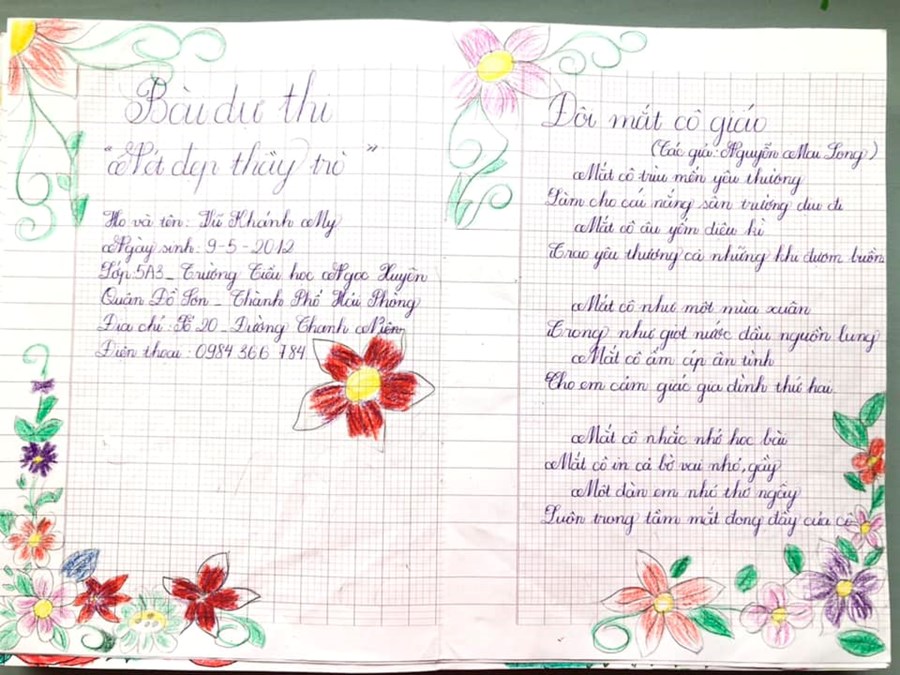 Bài dự thi
"Nét đẹp thầy trò"
Họ và tên: Vũ Khánh My
Ngày sinh: 9-5-2012
Lớp 5A3 - Trường Tiểu học Ngọc Xuyên
Quận Đồ Sơn - Thành Phố Hải Phòng
Địa chỉ: Tổ 20 - Đường Thanh Niên
Điện thoại: 0984 366 784
Đôi mắt cô giáo
(Tác giả: Nguyễn Mai Long)
Mắt cô trìu mến yêu thương
Làm cho cái nắng sân trường dịu đi
Mắt cô âu yếm diệu kì
Trao yêu thương cả những khi đượm buồn
Mắt cô như một mùa xuân
Trong như giọt nước đầu nguồn lung
Mắt cô ấm áp ân tình
Cho em cảm giác gia đình thứ hai
Mắt cô nhắc nhở học bài
Mắt cô in cả bờ vai nhỏ, gầy
Một đàn em nhỏ thơ ngây
Luôn trong tầm mắt đong đầy của cô